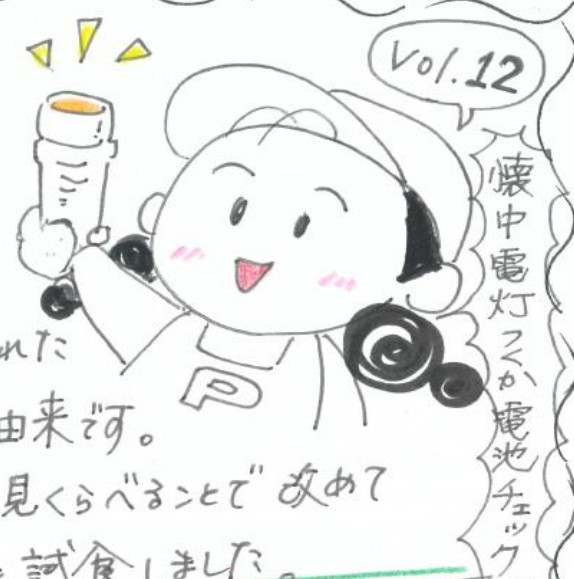 Vol.12
懐中電灯つくか電池チェック
P
れた
由来です。
見くらべることで 改めて
試食しました。